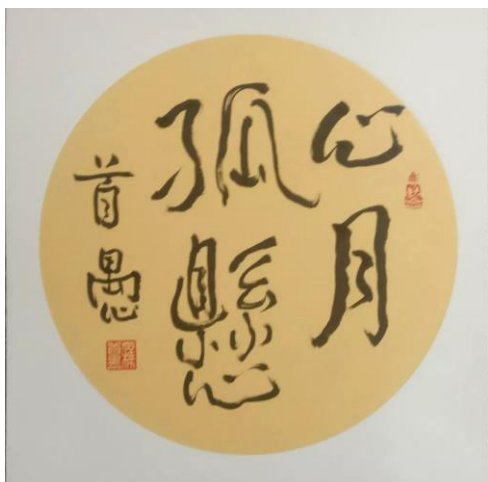 心月
孤懸
首愚